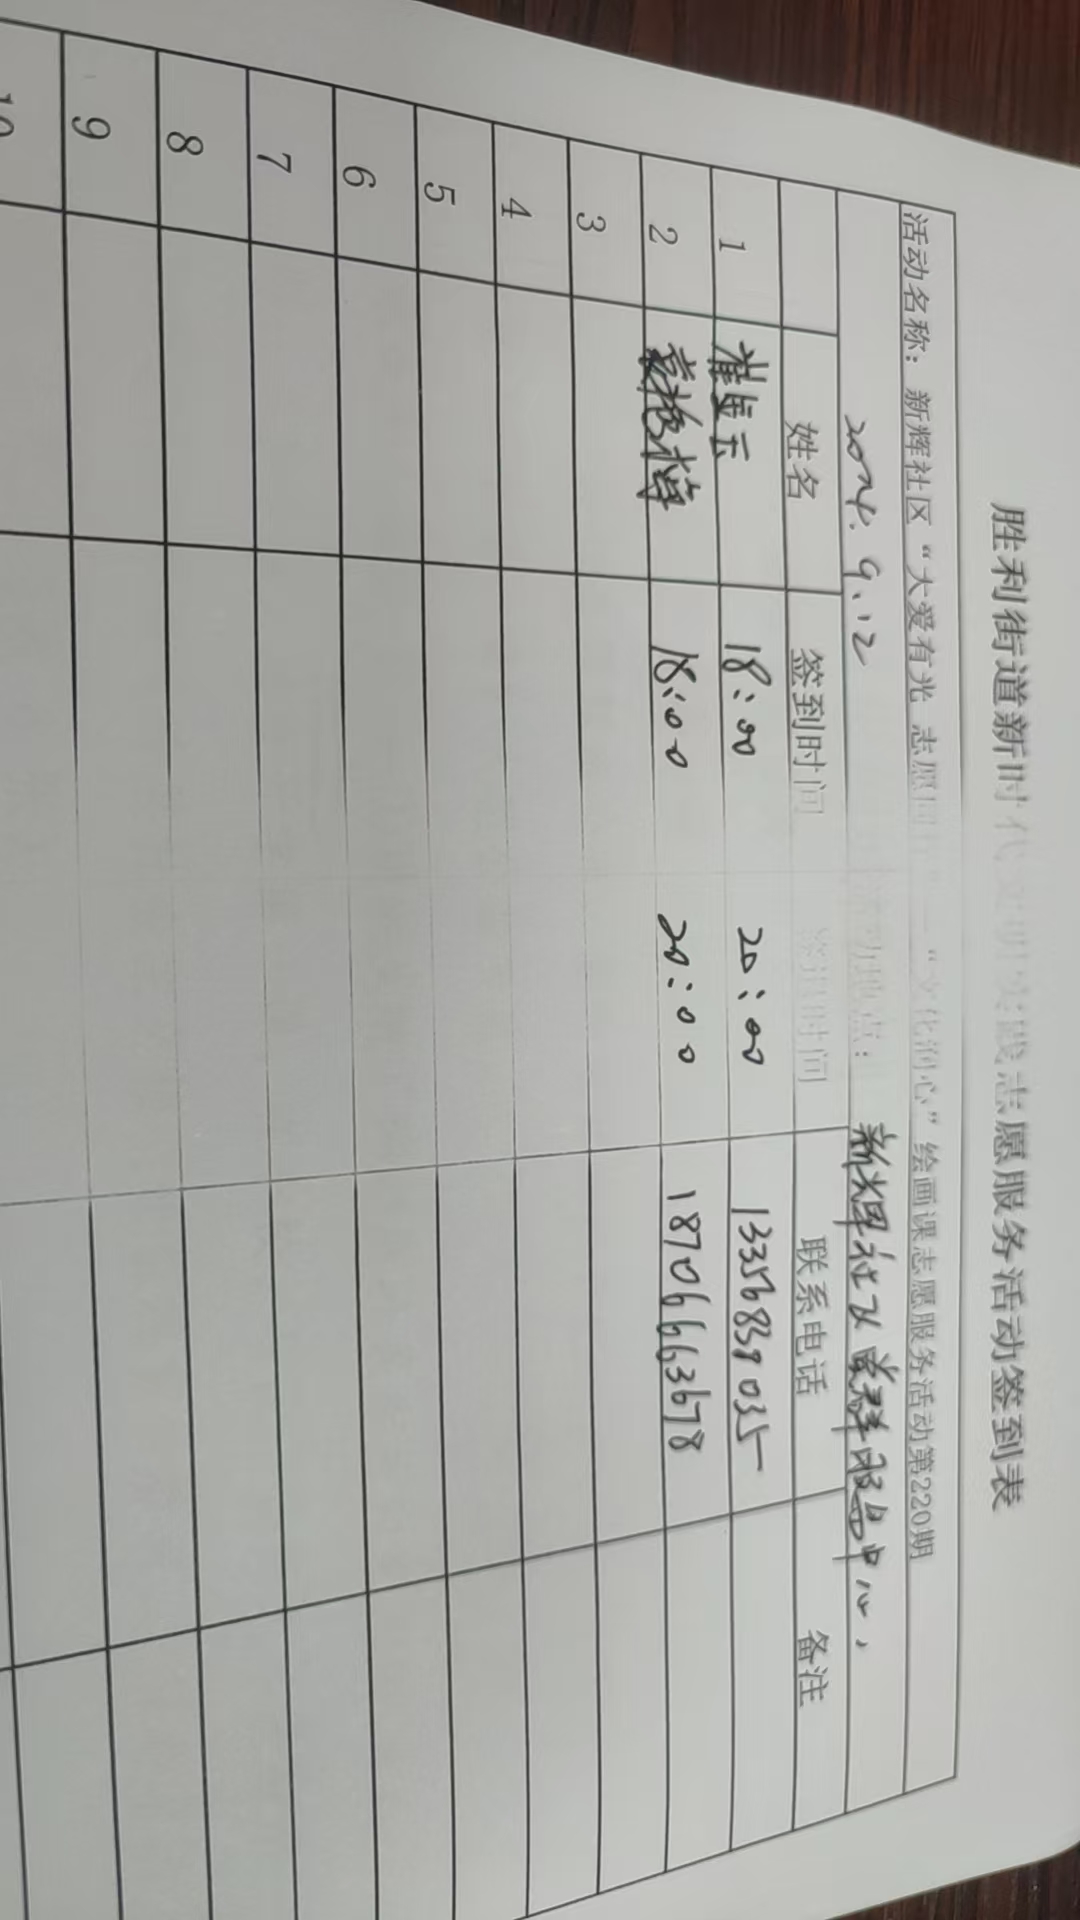 胜利街道新时代文明实践志愿服务活动签到表
活动名称：新辉社区“大爱有光 志愿同行”——“文化润心”绘画课志愿服务活动第220期
2024.9.12 活动地点：新辉社区党群服务中心
姓名 签到时间 签退时间 联系电话 备注
1 崔 云 18:00 20:00 13356839035
2 18:00 20:00 18706663678
3
4
5
6
7
8
9
10